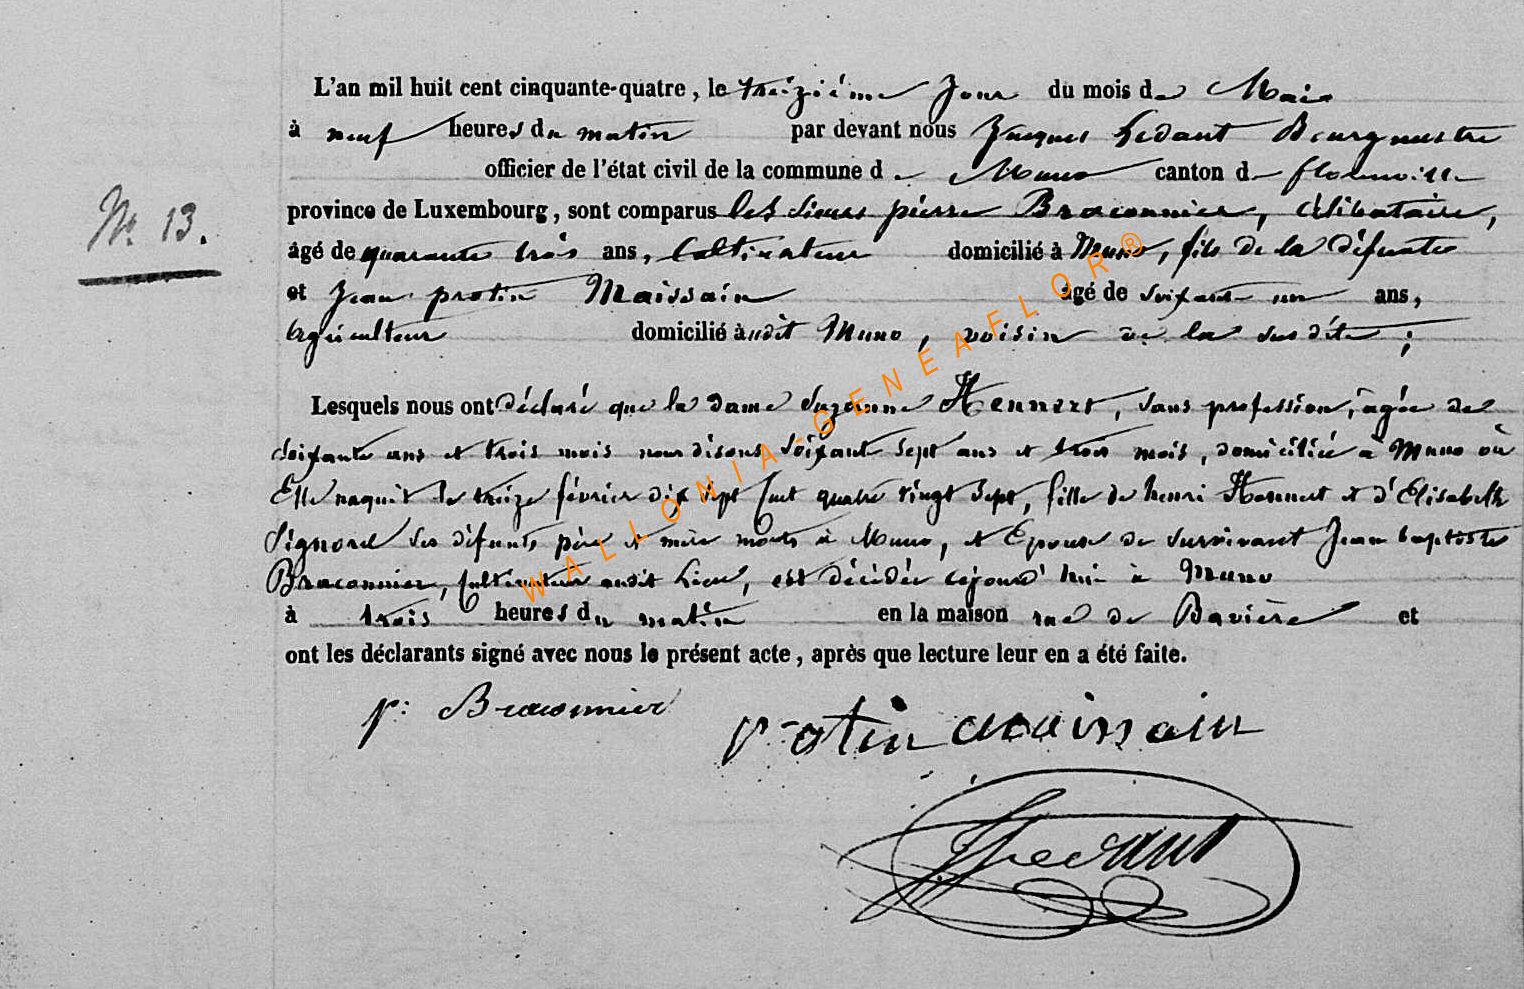 L'an mil huit cent cinquante-quatre, le treizième Jour du mois de Mai
à neuf heures du matin par devant nous Jacques Ledant Bourgmestre
officier de l'état civil de la commune de Muno canton de florenville
province de Luxembourg, sont comparus les sieurs pierre Braconnier, célibataire,
âgé de quarante trois ans, Cultivateur domicilié à Muno, fils de la défunte
et Jean protin Maissain âgé de soixante un ans,
N. 13.
Agriculteur domicilié audit Muno, voisin de la susdite;
Lesquels nous ont déclaré que la dame Suzanne Hennert, sans profession, âgée de
soixante ans et trois mois nous disons soixante sept ans et trois mois, domiciliée à Muno où
Elle naquit le treize février dix sept cent quatre vingt sept, fille de henri Hennert et d'Elisabeth
Signorel ses défunts père et mère morts à Muno, et Epouse de survivant Jean baptiste
Braconnier, Cultivateur audit Lieu, est décédée cejourd'hui à Muno
à trois heures du matin en la maison rue de Bavière et
ont les déclarants signé avec nous le présent acte, après que lecture leur en a été faite.
p: Braconnier
protin maissain
JLedant
WALLONIA-GENEAFLOR®